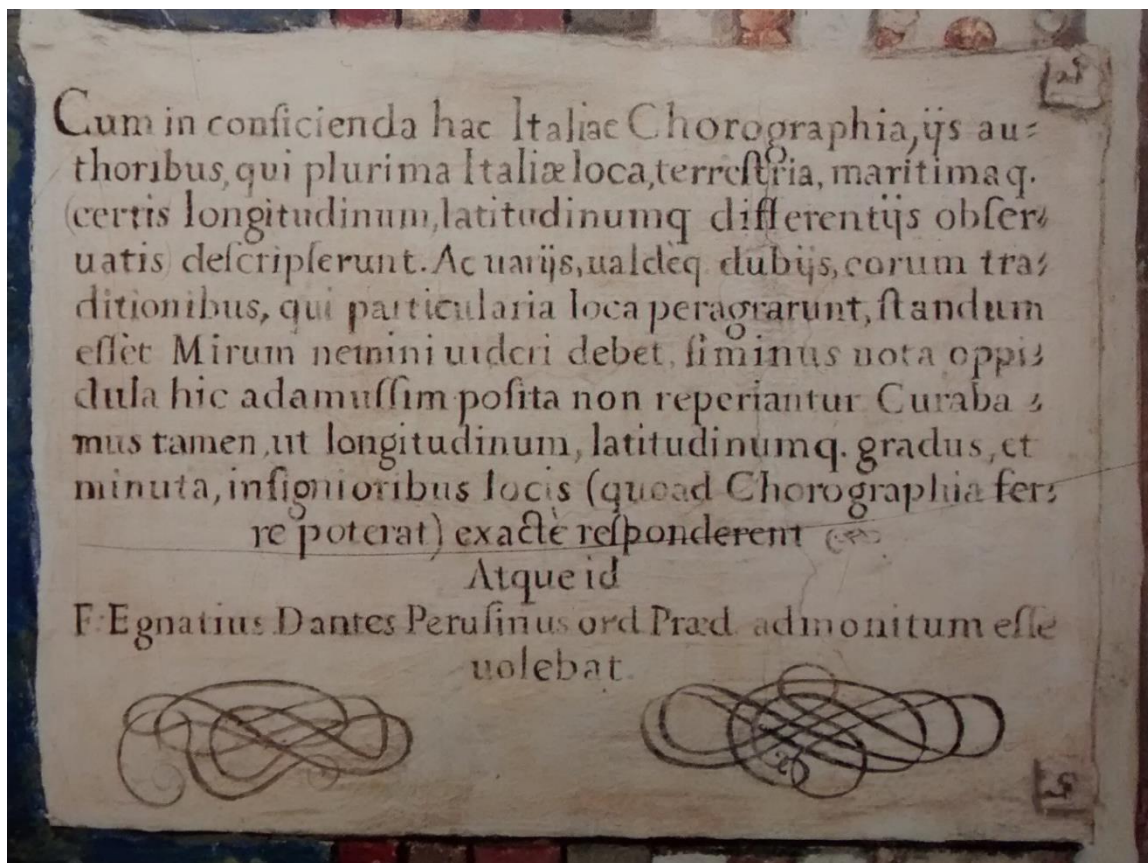 Cum in conficienda hac Italiae Chorographia, ijs au⸗
thoribus, qui plurima Italiæ loca, terreſtria, maritimaq.
(certis longitudinum, latitudinumq differentijs obſer⸗
uatis) deſcripſerunt. Ac uarijs, ualdèq dubijs, eorum tra⸗
ditionibus, qui particularia loca peragrarunt, ſtandum
eſſèt Mirum nemini uideri debet, ſi minus nota oppi⸗
dula hic adamuſſim poſita non reperiantur Curaba⸗
mus tamen, ut longitudinum, latitudinumq. gradus, et
minuta, inſignioribus locis (quoad Chorographia fer⸗
re poterat) exactè reſponderent
Atque id
F. Egnatius Dantes Peruſinus ord Præd. admonitum eſſe
uolebat.